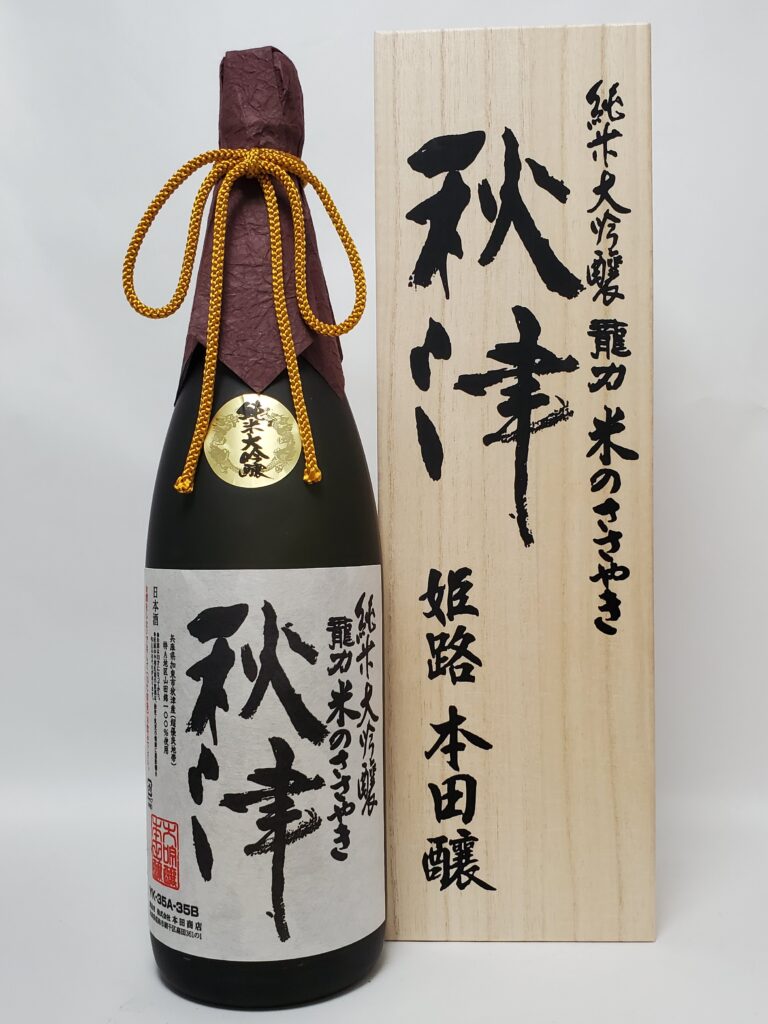 純米大吟醸
龍力 米のささやき
秋津
姫路 本田醸
純米大吟醸
純米大吟醸
龍力 米のささやき
秋津
兵庫県加東市秋津産
特A地区山田錦一〇〇%使用
日本酒
K-35A-35B
株式会社 本田商店